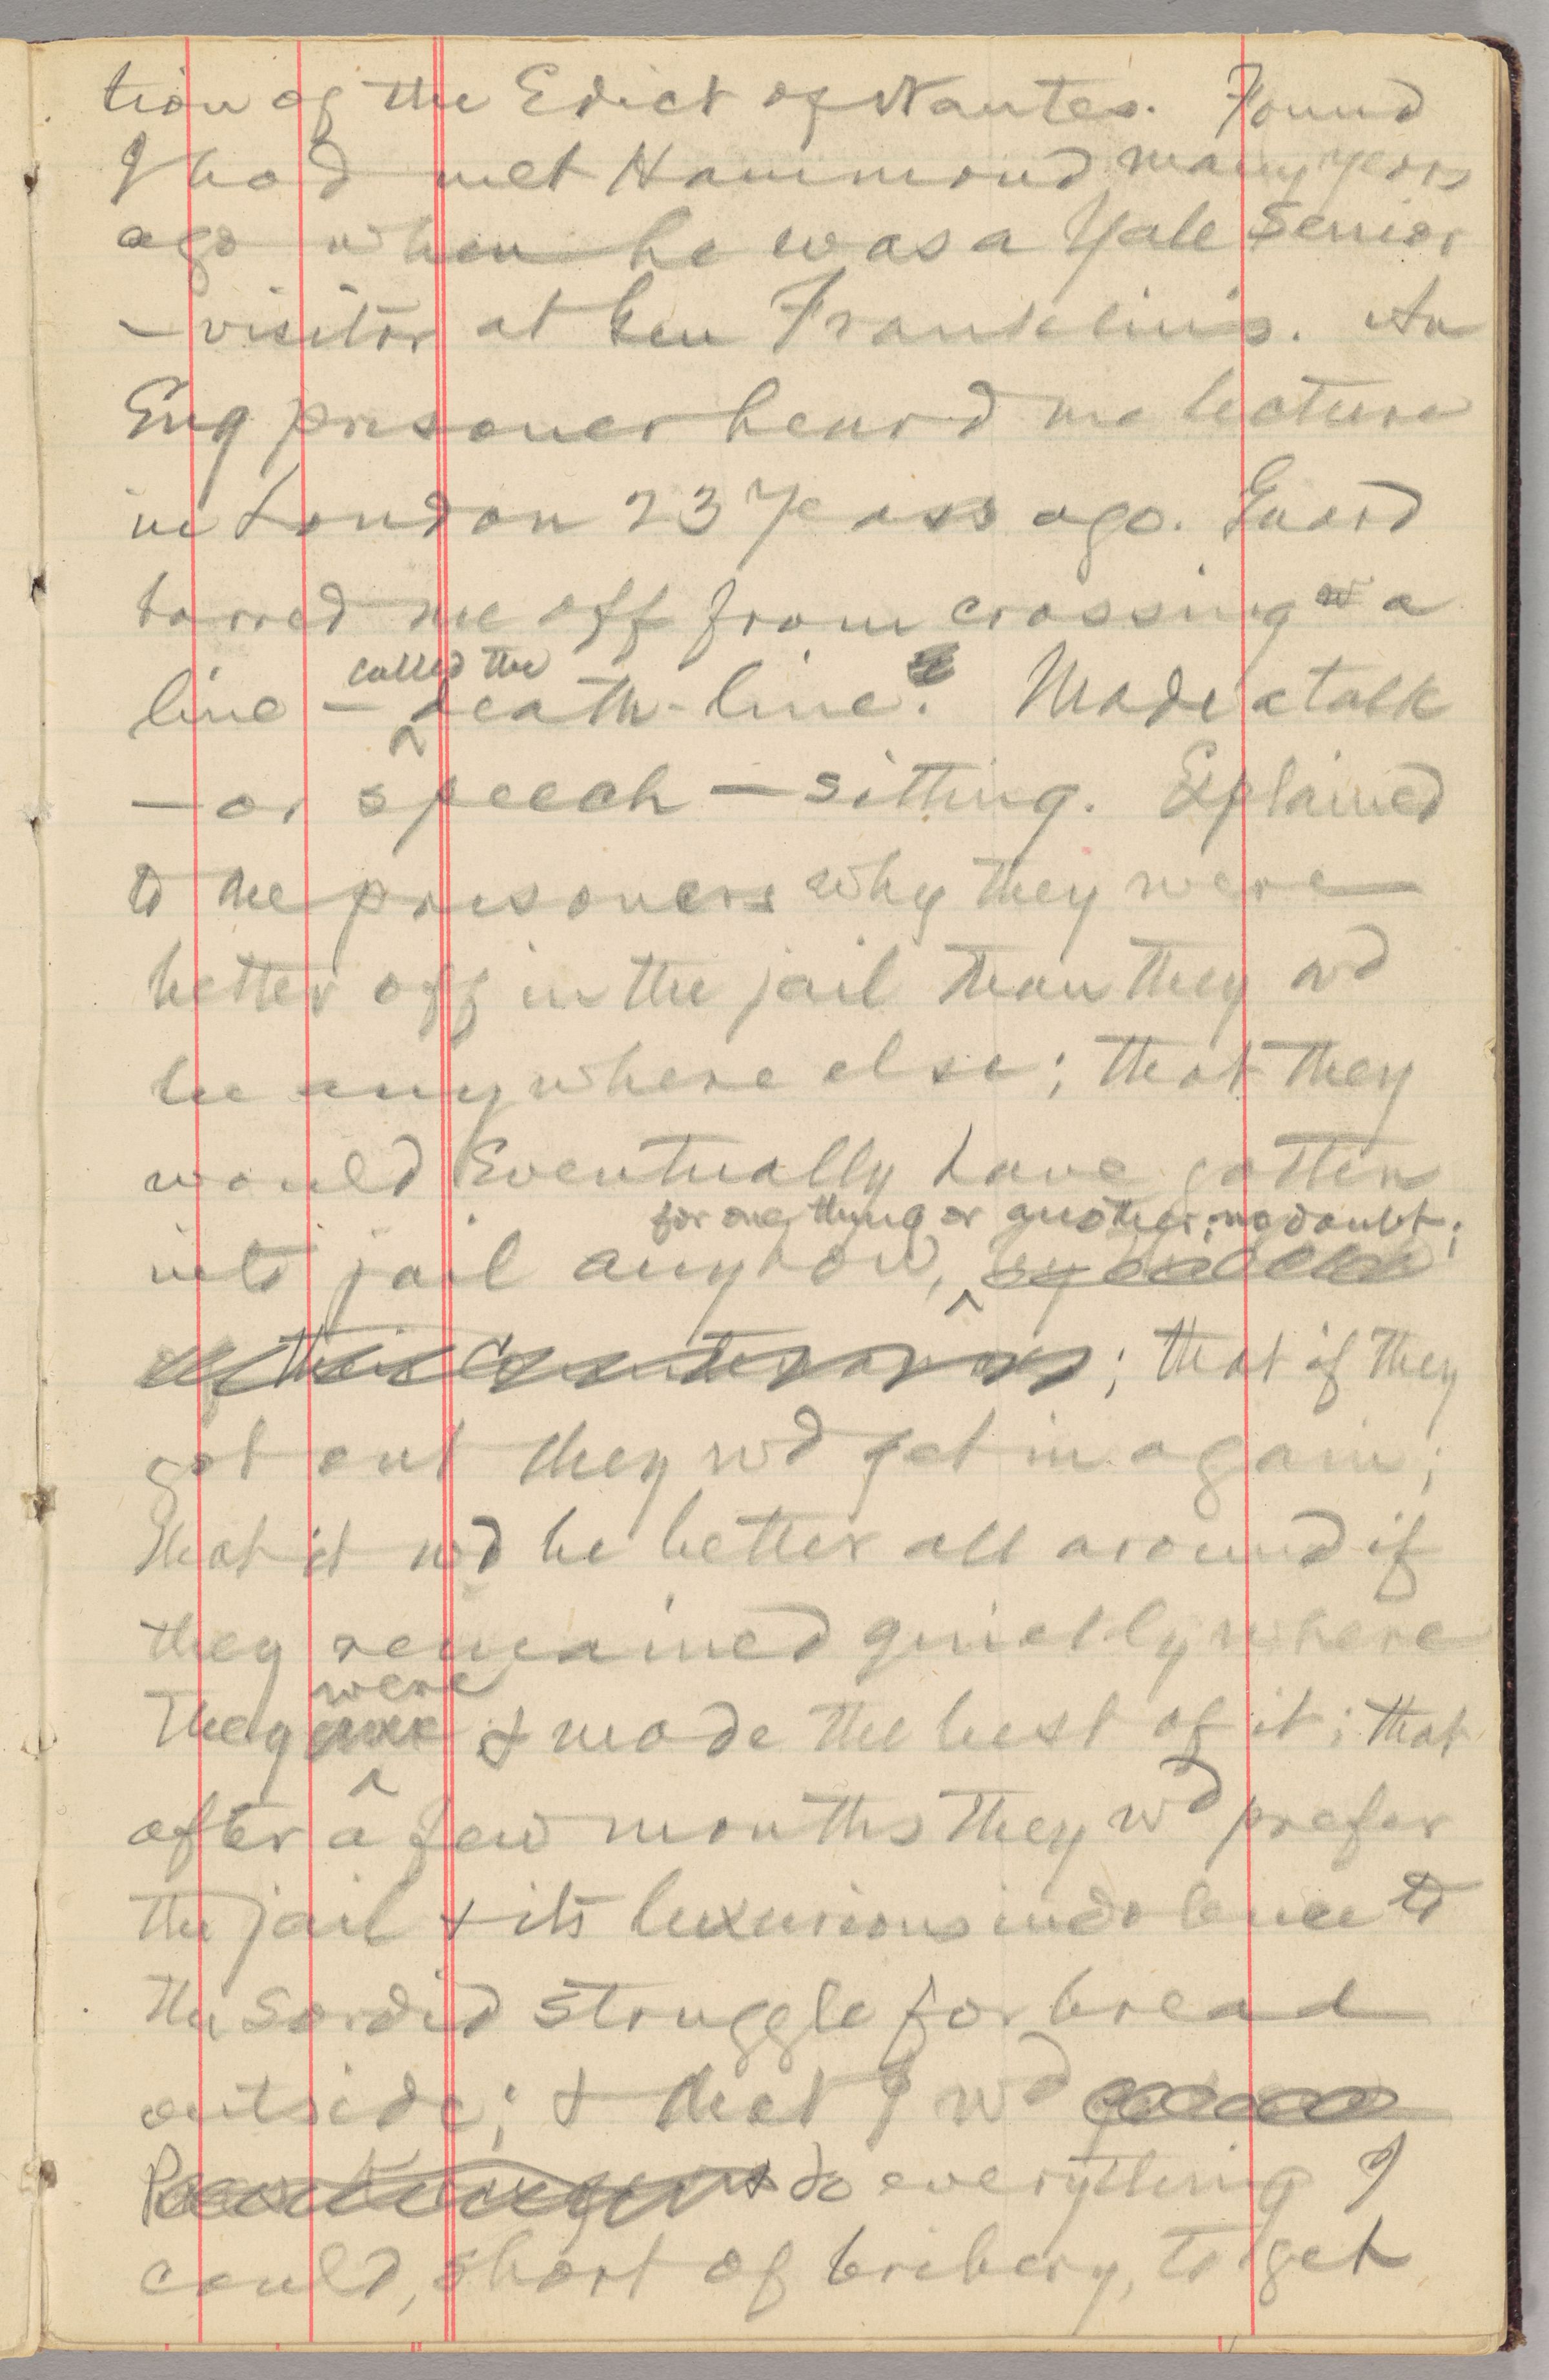 tion of the Edict of Nantes. Found
I had met Hammond many years
ago when he was a Yale Senior
— visitor at Gen Franklin's. An
Eng prisoner heard me lecture
in London 23 years ago. Guard
barred me off from crossing a
called the
line — death-line. Made a talk
— or speech — sitting. Explained
to the prisoners why they were
better off in the jail than they wd
be anywhere else; that they
would eventually have gotten
for one thing or another, no doubt;
into jail anyhow,
; that if they
got out they wd get in again;
that it wd be better all around if
they remained quietly where
were
they & made the best of it; that
after a few months they wd prefer
the jail & its luxurious indolence to
the sordid struggle for bread
outside; & that I wd
do everything I
could, short of bribery, to get